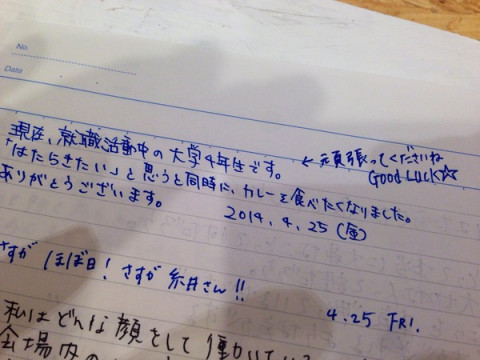 No.
Date
現在、就職活動中の大学4年生です。 ← 頑張ってくださいね
「はたらきたい」と思うと同時に、カレーを食べたくなりました。 GOOD LUCK☆
ありがとうございます。
2014.4.25 (金)
さすが ほぼ日! さすが 糸井さん!!
4.25 FRI.
私はどんな顔をして働いている
会場内の